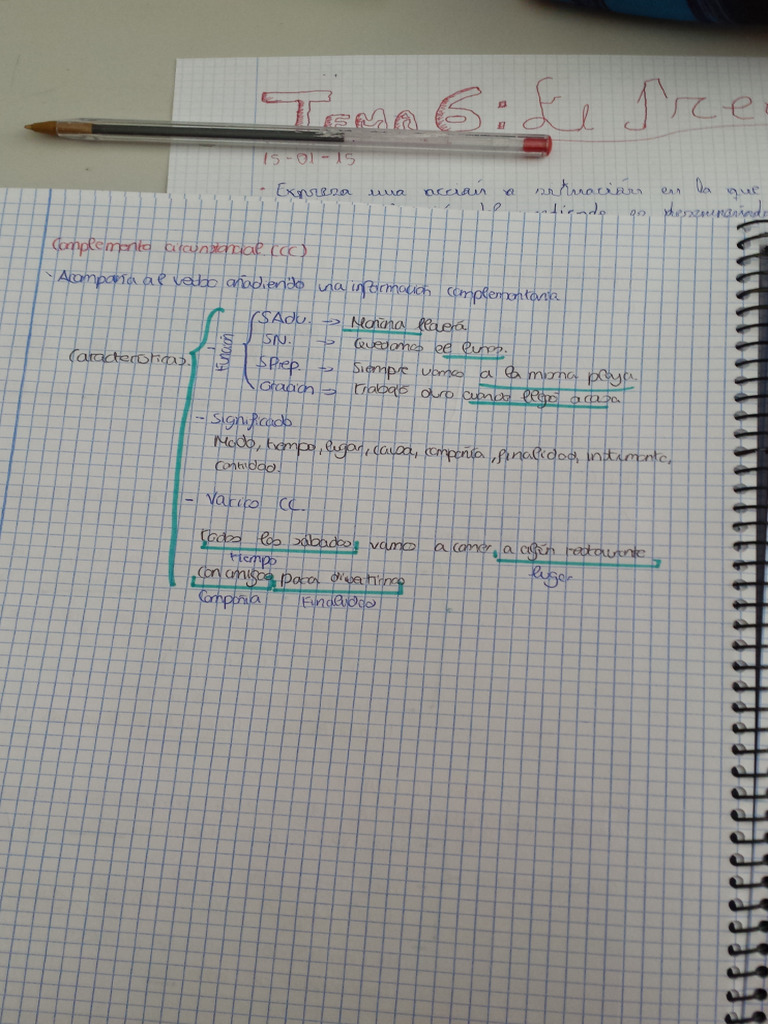 Tema 6: El Pre
15-01-15
- Expresa una acción o información en la que
Complemento circunstancial (CC)
- Acompaña al verbo añadiendo una información complementaria
Características.
Función
SAdv. → Mañana lloverá
SN. → Quedamos el lunes.
SPrep. → Siempre vamos a la misma playa
Oración → trabajo duro cuando llego a casa
- Significado
Modo, tiempo, lugar, causa, compañía, finalidad, instrumento,
cantidad.
- Varios CC.
todos los sábados, vamos a comer, a algún restaurante
tiempo lugar
con amigos para divertirnos
Compañía Finalidad